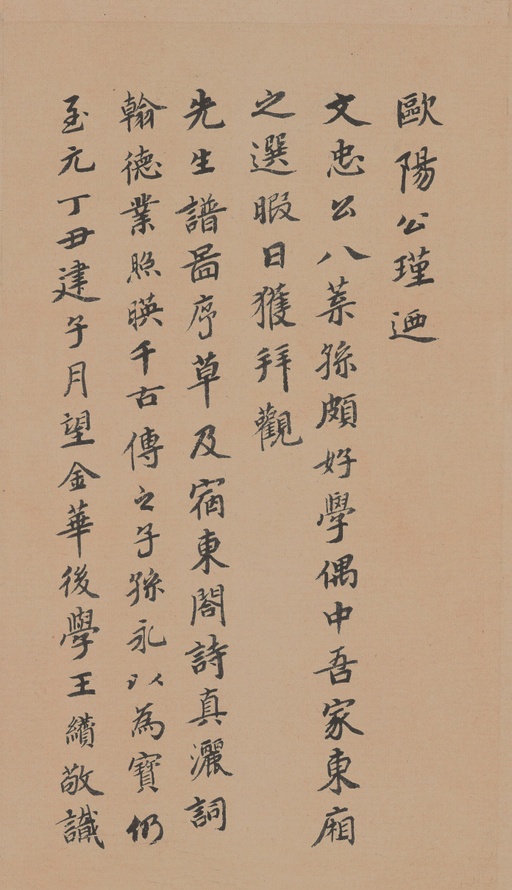 歐陽公瑾迺
文忠公八葉孫頗好學偶中吾家東廂
之選暇日獲拜觀
先生譜圖序草及宿東閣詩真灑詞
翰德業照暎千古傳之子孫永以為寶仍
至元丁丑建子月望金華後學王繢敬識